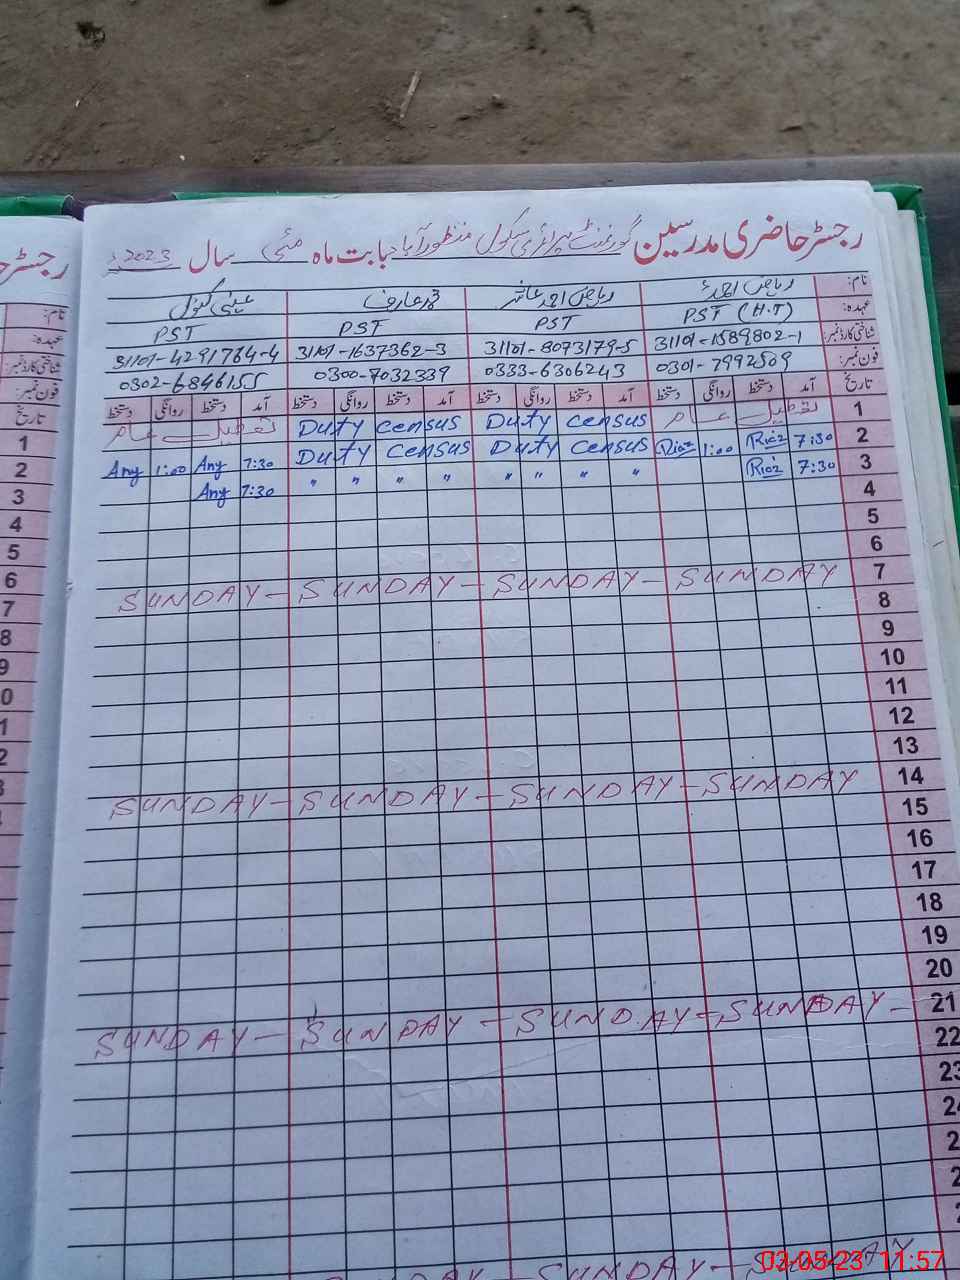 رجسٹر حاضری مدرسین گورنمنٹ پرائمری سکول منظور آباد بابت ماہ مئی سال 2023ء
نام: ریاض احمد ریاض احمد عارف عینی کنول
عہدہ: PST (H.T) PST PST PST
شناختی کارڈ نمبر: 31101-1589802-1 31101-8073179-5 31101-1637362-3 31101-4291764-4
فون نمبر: 0301-7992509 0333-6306243 0300-7032339 0302-6846155
تاریخ آمد دستخط روانگی دستخط آمد دستخط روانگی دستخط آمد دستخط روانگی دستخط آمد دستخط روانگی دستخط
1 تعطیل عام Duty census Duty census تعطیل عام
2 7:30 Riaz 1:00 Riaz Duty census Duty census 7:30 Any 1:00 Any
3 7:30 Riaz " " " " " " " " 7:30 Any
4
5
6
7 SUNDAY - SUNDAY - SUNDAY - SUNDAY
8
9
10
11
12
13
14 SUNDAY - SUNDAY - SUNDAY - SUNDAY
15
16
17
18
19
20
21 SUNDAY - SUNDAY - SUNDAY - SUNDAY -
22
23
24
SUNDAY - SUNDAY - SUNDAY
رجسٹر
نام:
عہدہ:
شناختی کارڈ نمبر:
فون نمبر:
تاریخ
1
2
3
4
5
6
7
8
9
0
1
2
3
03-05-23 11:57